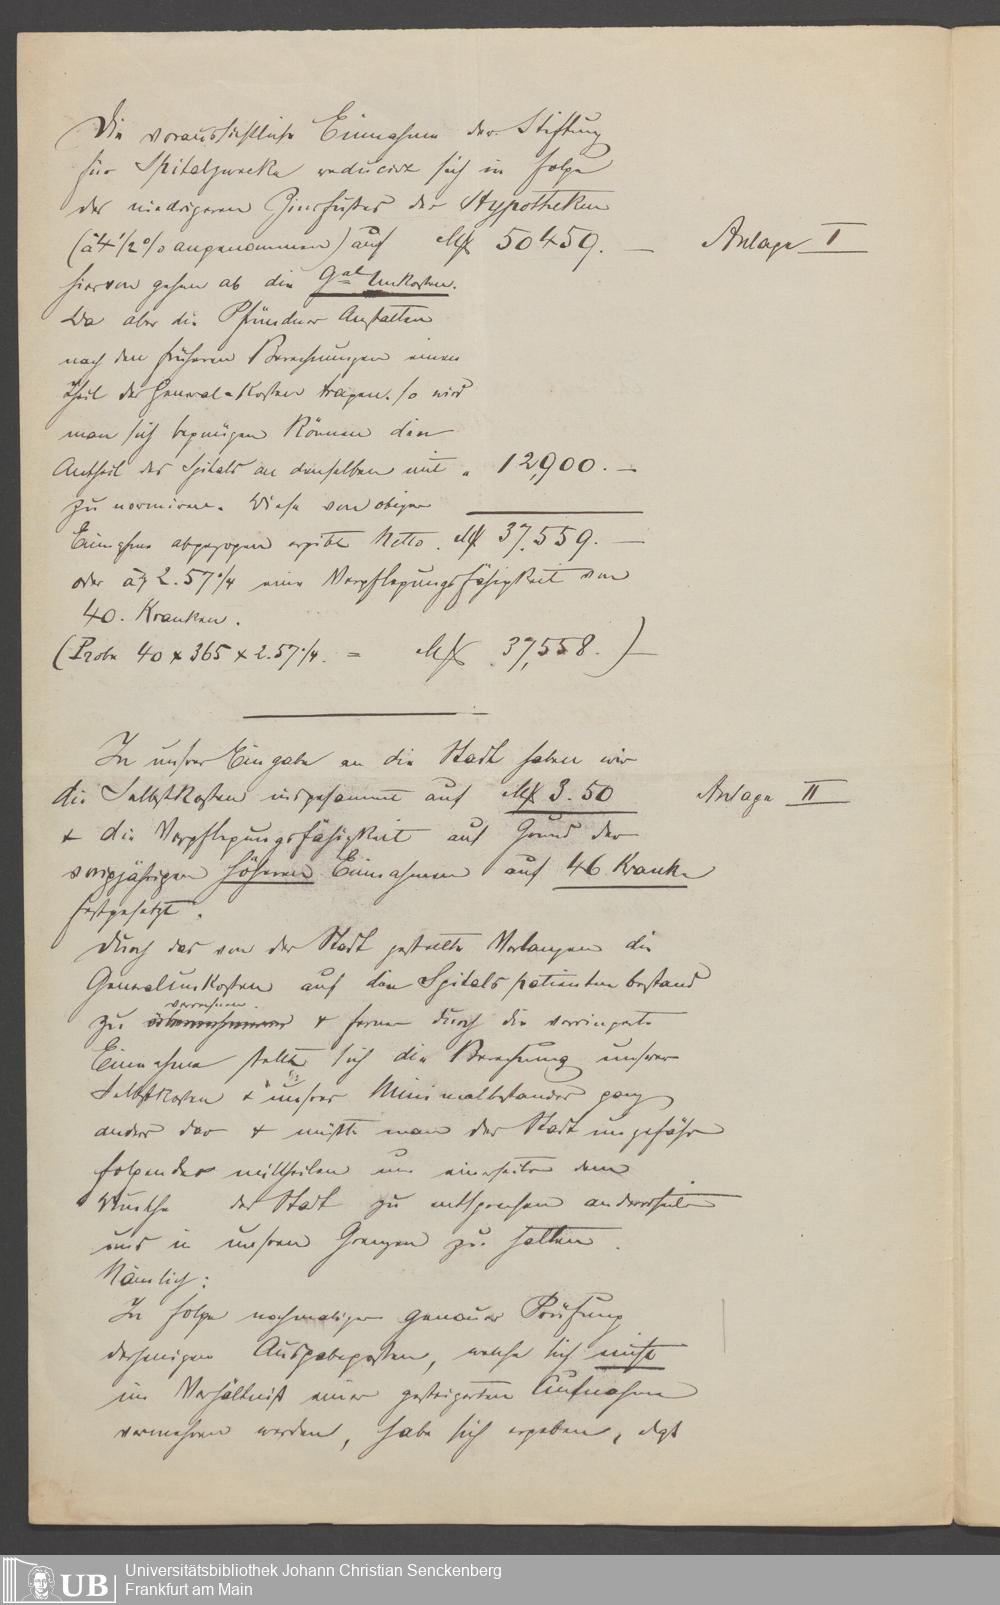 Die voraussichtliche Einnahme der Stiftung
für Spitalzwecke reducirt sich in Folge
des niedrigeren Zinsfußes der Hypotheken
(à 4 1/2 % angenommen) auf M 50459. — Anlage I
hiervon gehen ab die Gal Unkosten.
Da aber die Pfründner Anstalten
nach den früheren Berechnungen einen
Theil der General-Kosten tragen. so wird
man sich begnügen können den
Antheil des Spitals an denselben mit " 12,900. —
zu normiren. Diese von obiger
Einnahme abgezogen ergibt Netto. M 37,559. —
oder à 2.57 1/4 eine Verpflegungsfähigkeit von
40. Kranken.
(Probe 40 x 365 x 2.57 1/4. = M 37,558.) —
In unsrer Eingabe an die Stadt haben wir
die Selbstkosten insgesammt auf M 3.50 Anlage II
+ die Verpflegungsfähigkeit auf Grund der
vorigjährigen höheren Einnahmen auf 46 Kranke
festgesetzt.
Durch das von der Stadt gestellte Verlangen die
Generalunkosten auf den Spitalspatientenbestand
verrechnen.
zu + ferner durch die verringerte
Einnahme stellt sich die Berechnung unserer
Selbstkosten + unsres Minimalbestandes ganz
anders dar + müßte man der Stadt ungefähr
folgendes mittheilen um einerseits dem
Wunsche der Stadt zu entsprechen andererseits
uns in unseren Grenzen zu halten.
Nämlich:
In Folge nochmaliger genauer Prüfung
derjenigen Ausgabeposten, welche sich nicht
im Verhältniß einer gesteigerten Aufnahme
vermehren werden, habe sich ergeben, daß
Universitätsbibliothek Johann Christian Senckenberg
Frankfurt am Main
UB